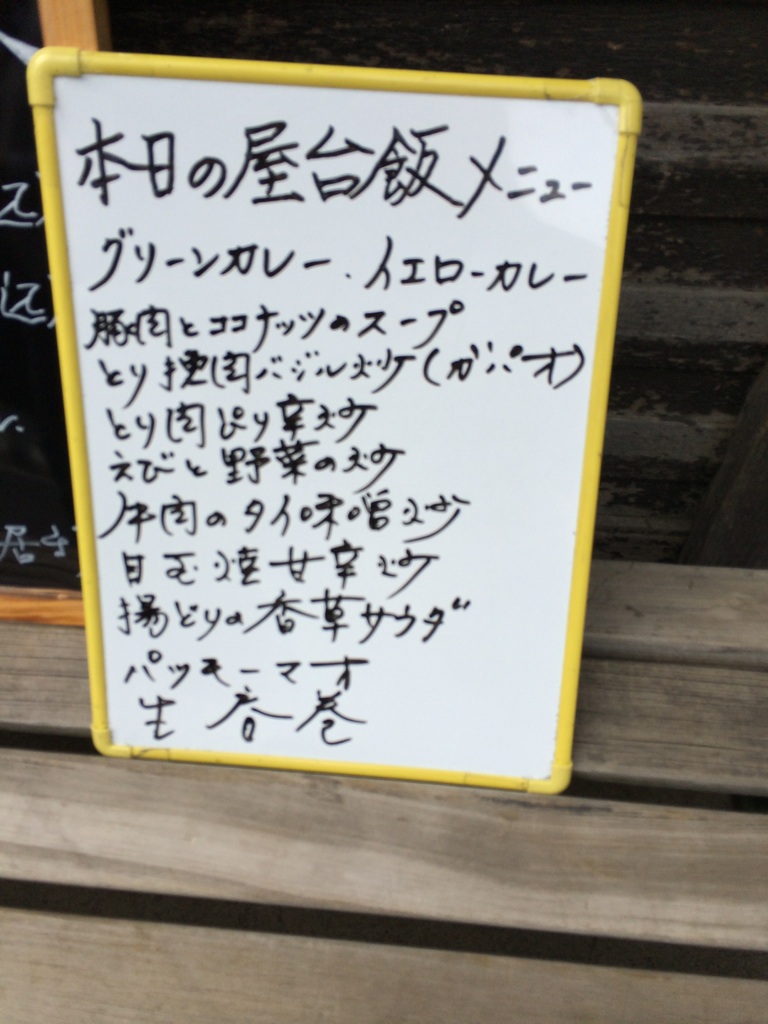 本日の屋台飯メニュー
グリーンカレー、イエローカレー
豚肉とココナッツのスープ
とり挽肉バジル炒(ガパオ)
とり肉ぴり辛炒
えびと野菜の炒
牛肉のタイ味噌炒
目む焼甘辛炒
揚どりの香草サウダ
パッモーマオ
生春巻
込)
込)